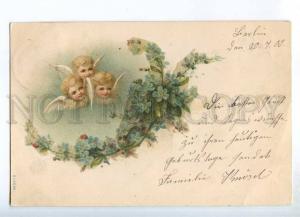 Berlin
den 20.7.00.
Die besten Glück
wünsche
zu Ihrem heutigen
Geburtstage sendet
Familie